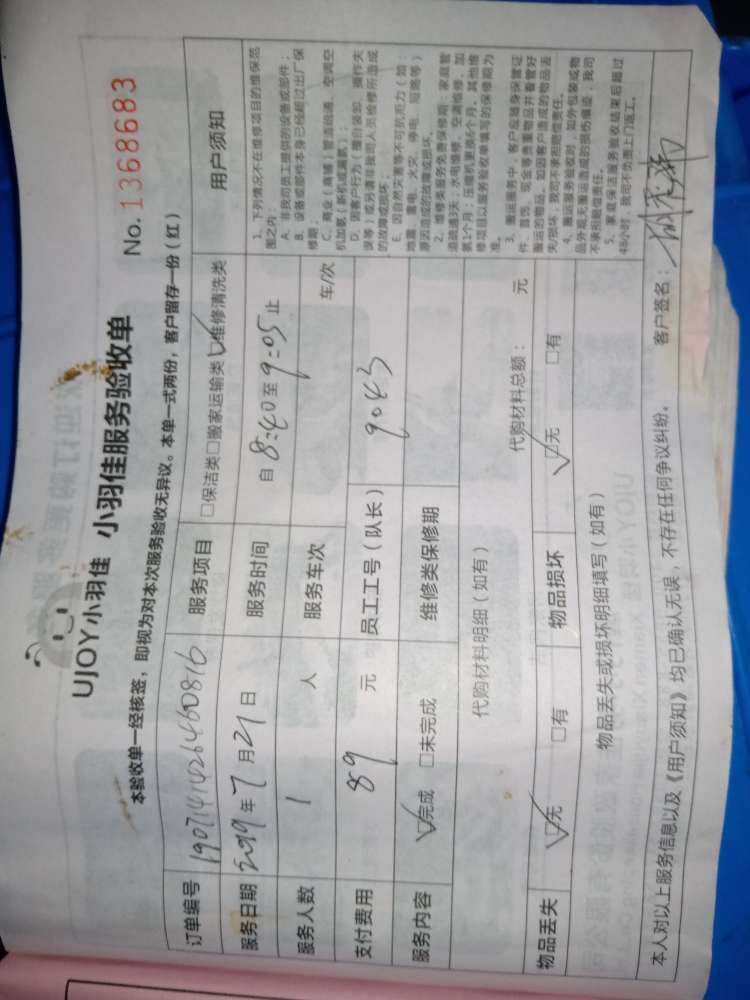 UJOY小羽佳 小羽佳服务验收单
No. 1368683
本验收单一经核签，即视为对本次服务验收无异议。本单一式两份，客户留存一份（红）
订单编号 190714142646081 6 服务项目 □保洁类□搬家运输类☑维修清洗类
服务日期 2019年7月21日 服务时间 自8:40至9:05止
服务人数 1 人 服务车次 车/次
支付费用 89 元 员工工号（队长） 9043
服务内容 ☑完成 □未完成 维修类保修期
代购材料明细（如有） 代购材料总额： 元
物品丢失 ☑无 □有 物品损坏 ☑无 □有
物品丢失或损坏明细填写（如有）
用户须知
1、下列情况不在维修项目的维保范
围之内：
A、非我司员工提供的设备或部件；
B、设备或部件本身已经超过出厂保
修期；
C、商业（商铺）管道疏通、空调空
机加氨（新机或满氨）；
D、因客户行为（擅自装卸、操作失
误等）或另请非我司人员检修所造成
的故障或损坏；
E、因自然灾害等不可抗拒力（如：
地震、雷电、火灾、停电、短路等）
原因造成的故障或损坏。
2、维修类服务免费保修期：家庭管
道疏通3天；水电维修、空调维修、加
氨1个月；压缩机更换6个月。其他维
修项目以服务验收单填写的保修期为
准。
3、搬运服务中，客户应随身保管证
件、首饰、现金等贵重物品并看管好
搬运的物品。如因客户造成的物品丢
失/损坏，我司不承担赔偿责任。
4、搬运服务验收时，如外包装或物
品外观无搬运造成的损伤痕迹，我司
不承担赔偿责任。
5、家庭保洁服务验收结束后超过
48小时，我司不负责上门返工。
本人对以上服务信息以及《用户须知》均已确认无误，不存在任何争议纠纷。 客户签名：